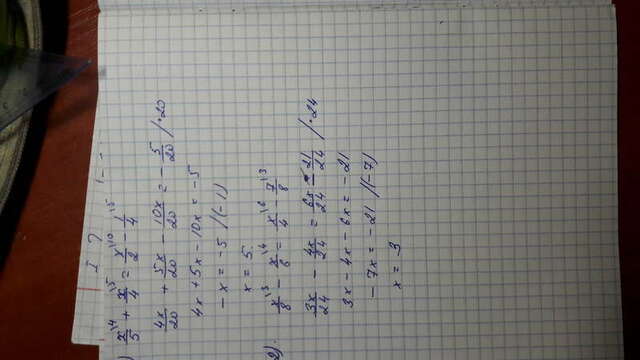 ) x/5 \4 + x/4 \5 = x/2 \10 - 1/4 \5
4x/20 + 5x/20 - 10x/20 = - 5/20 / · 20
4x + 5x - 10x = -5
- x = -5 /(-1)
x = 5
2). x/8 \3 - x/6 \4 = x/4 \6 - 7/8 \3
3x/24 - 4x/24 = 6x/24 - 21/24 / · 24
3x - 4x - 6x = - 21
- 7x = -21 /(-7)
x = 3